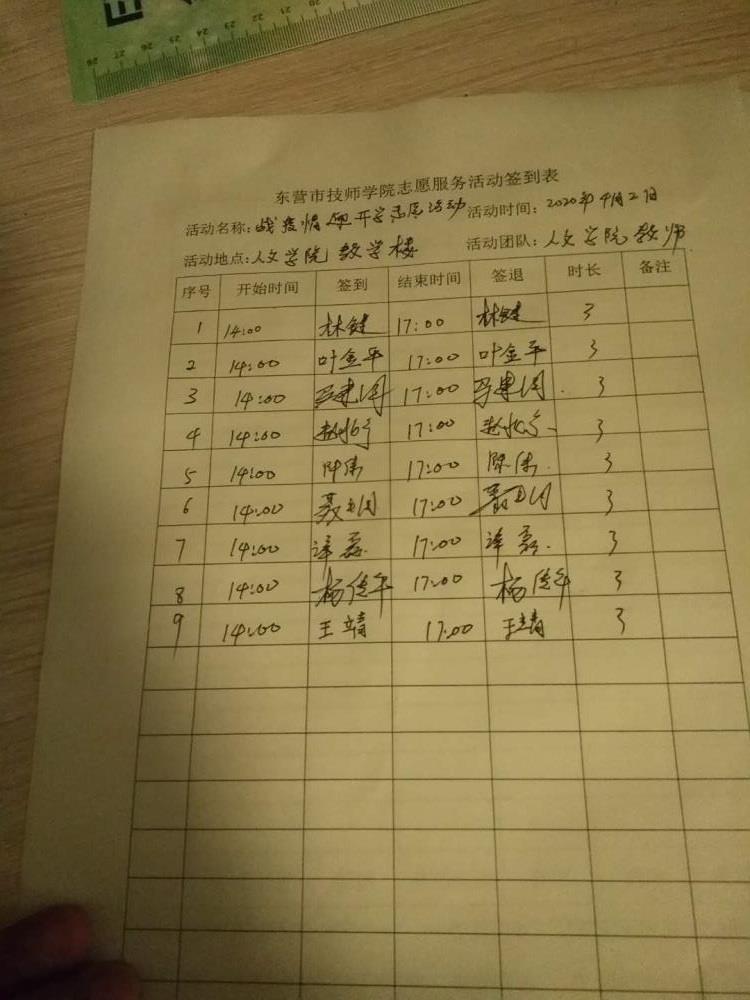 28 27 26 25 24 23 22
东营市技师学院志愿服务活动签到表
活动名称：战疫情迎开学志愿活动 活动时间：2020年4月2日
活动地点：人文学院教学楼 活动团队：人文学院教师
序号 开始时间 签到 结束时间 签退 时长 备注
1 14:00 林健 17:00 林健 3
2 14:00 叶金平 17:00 叶金平 3
3 14:00 17:00 3
4 14:00 17:00 3
5 14:00 陈伟 17:00 陈伟 3
6 14:00 17:00 3
7 14:00 17:00 3
8 14:00 17:00 3
9 14:00 王靖 17:00 王靖 3